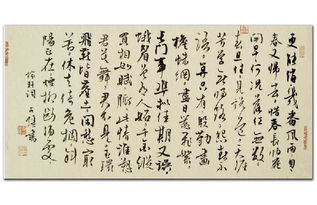 更能消幾番風雨匆
春又歸去惜春長怕花
開早何況落紅無數
春且住見說道天涯
芳草無歸路怨春不
語算只有殷勤畫
檐蛛網盡日惹飛絮
長門事準擬佳期又誤
蛾眉曾有人妒千金縱
買相如賦脈此情誰訴
君莫舞君不見玉環
飛燕皆塵土閑愁最
苦休去倚危欄斜
陽正在煙柳斷腸處
稼軒詞